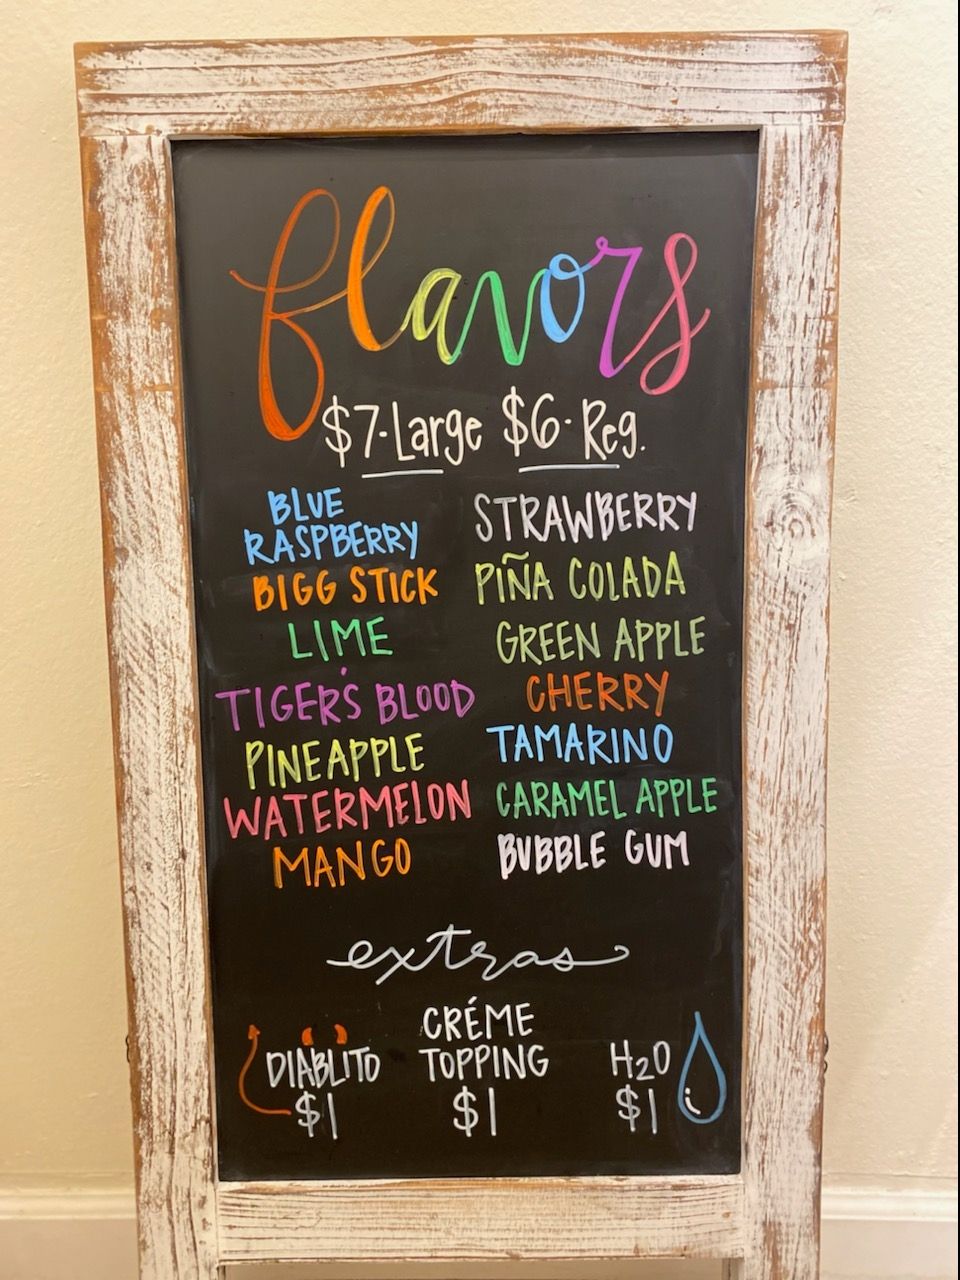 flavors
$7-Large $6-Reg.
BLUE
RASPBERRY
BIGG STICK
LIME
TIGER'S BLOOD
PINEAPPLE
WATERMELON
MANGO
STRAWBERRY
PIÑA COLADA
GREEN APPLE
CHERRY
TAMARINO
CARAMEL APPLE
BUBBLE GUM
extras
DIABLITO
$1
CRÉME
TOPPING
$1
H2O
$1